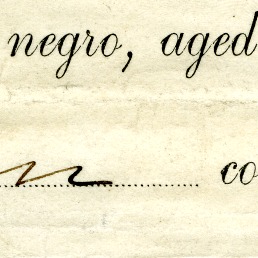 negro, aged
co